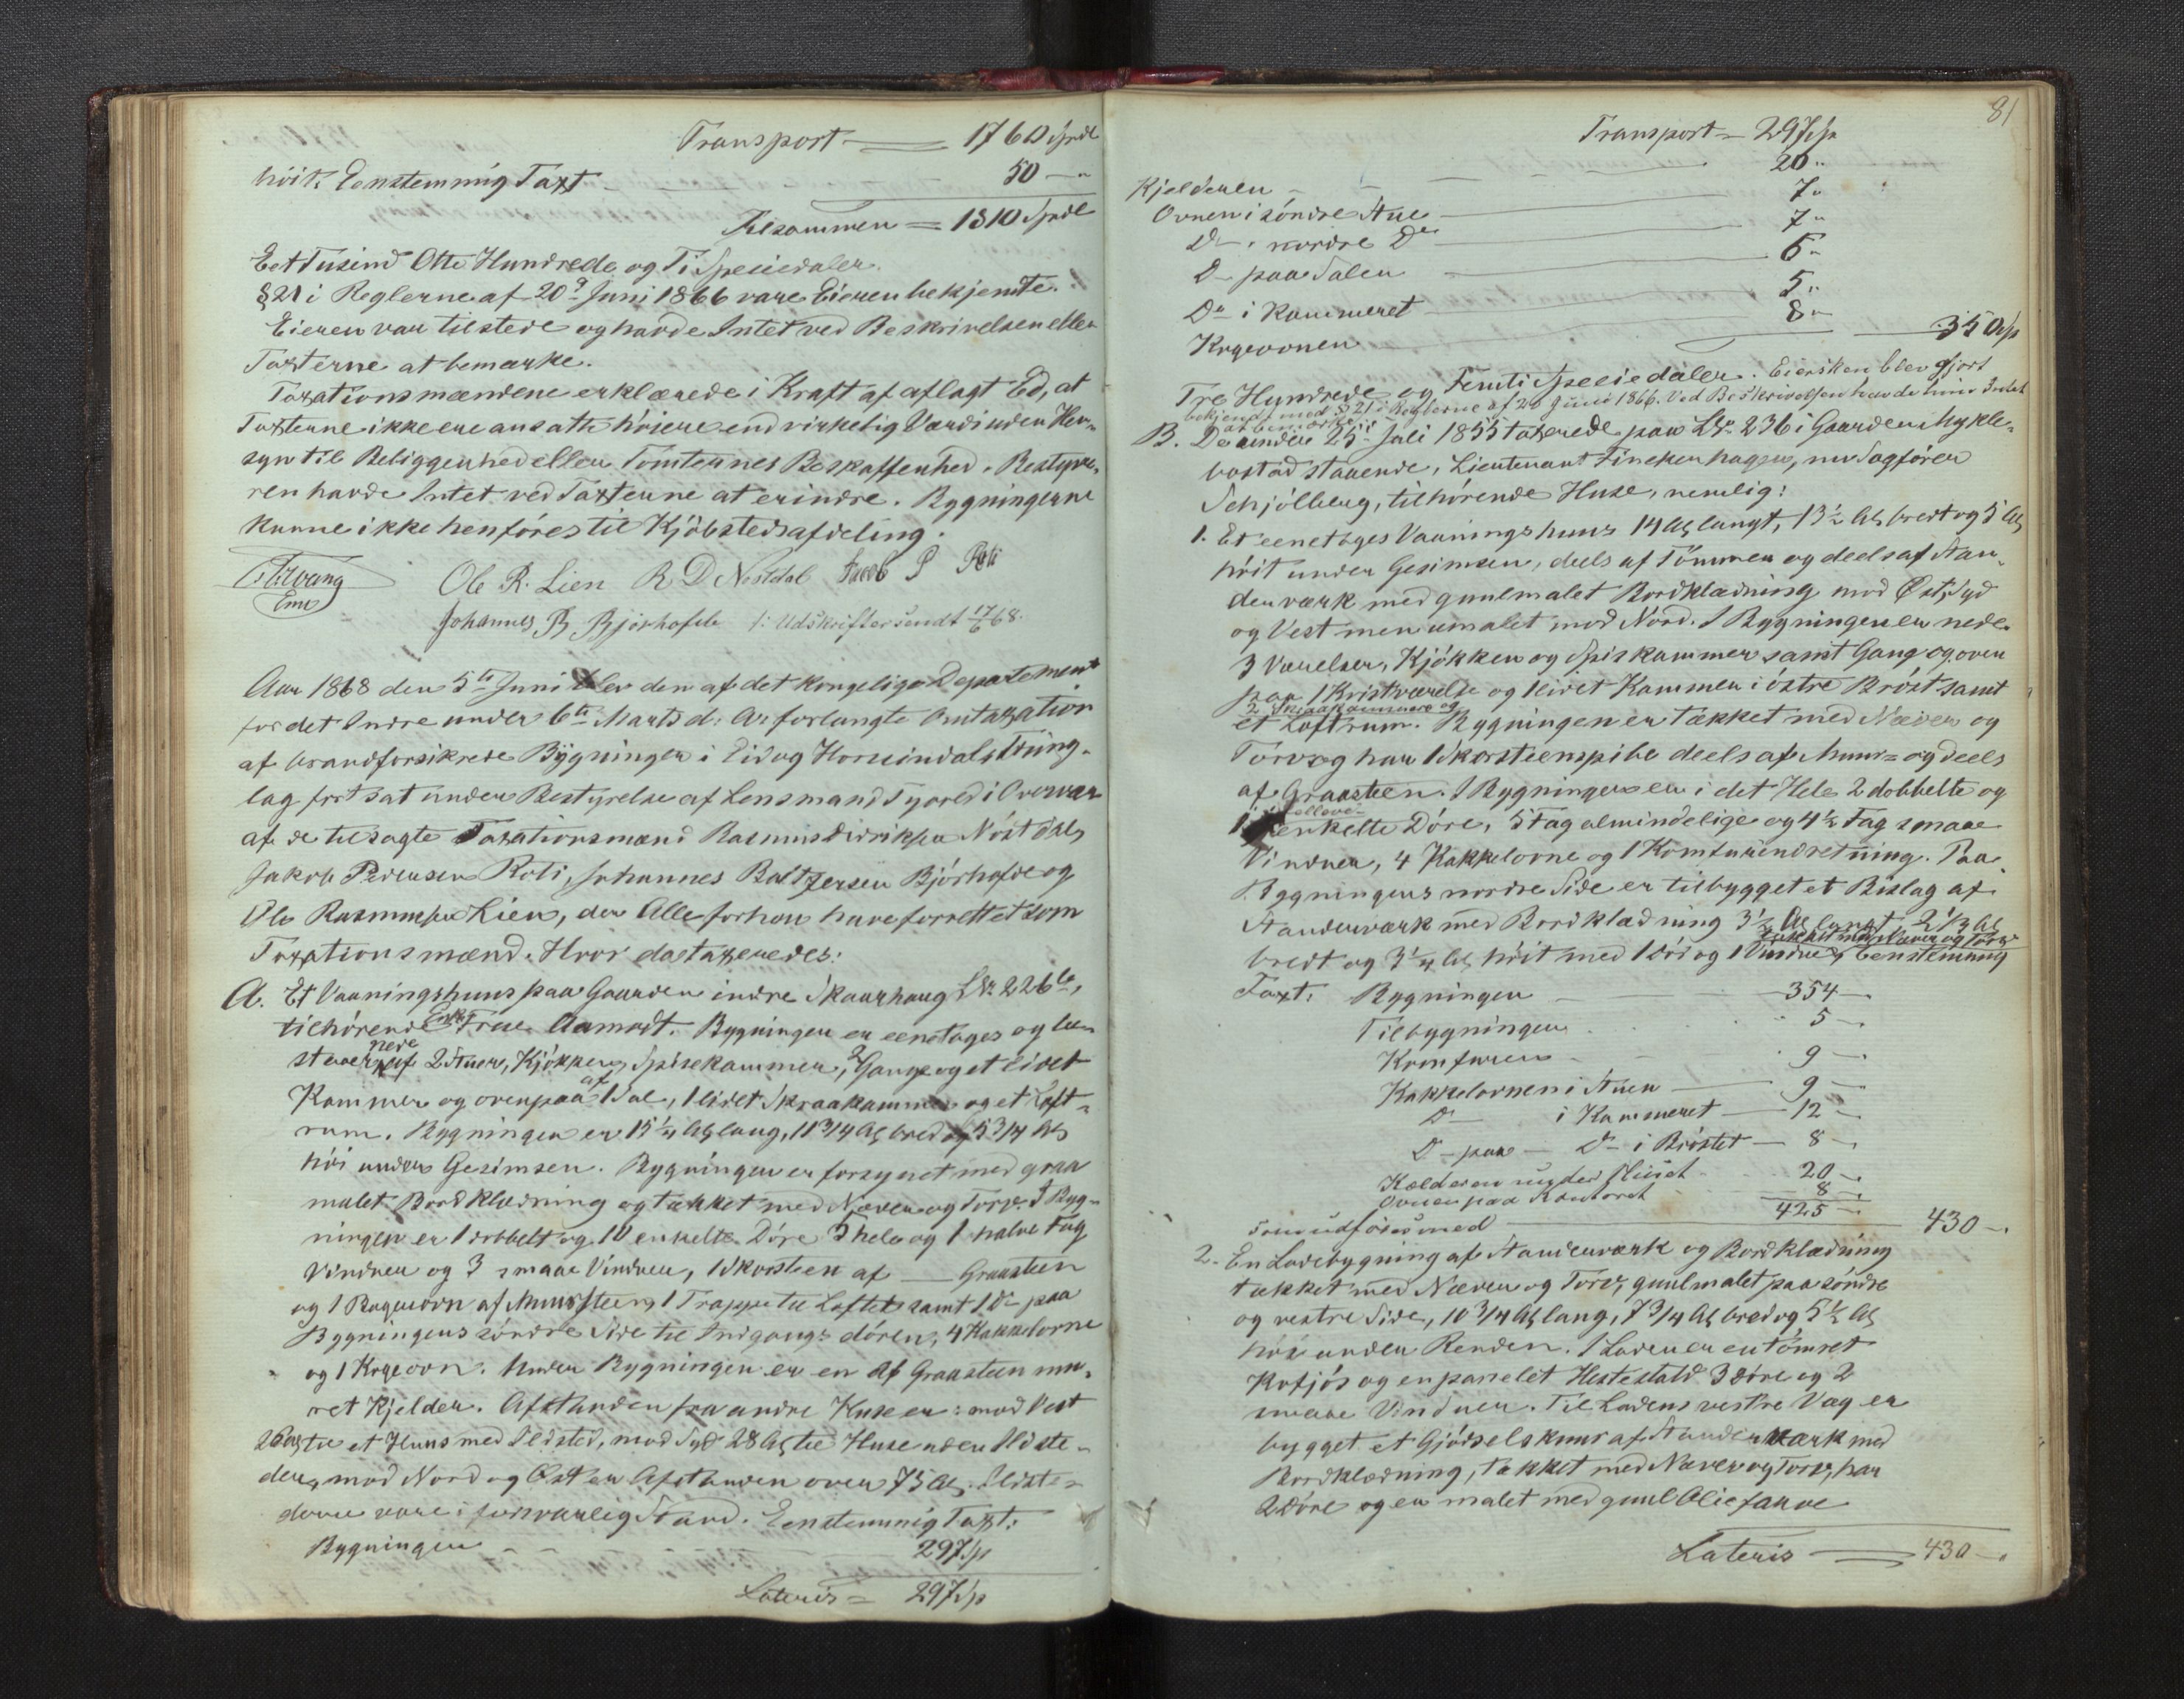 Transport 1760 Spdl
höit. Eenstemmig Taxt 50 -
Tilsammen = 1810 Spdl
Eet Tusind Otte Hundrede og Ti Speciedaler.
§ 21 i Reglerne af 20de Juni 1866 vare Eieren bekjendte.
Eieren var tilstede og havde Intet ved Beskrivelsen eller
Taxterne at bemærke.
Taxationsmændene erklærede i Kraft af aflagt Ed, at
Taxterne ikke ere ansatte höiere end virkelig Værdi uden Hen-
syn til Beliggenhed eller Tomternes Beskaffenhed. Bestyre-
ren havde Intet ved Taxterne at erindre. Bygningerne
kunne ikke henföres til Kjöbstedsafdeling.
Ole R. Lien R D Nøstdal Jacob P Roti
Johannes B Bjørhofde /: Udskrifter sendt 17/6 68.
Aar 1868 den 5te Juni blev den af det kongelige Departement
for det Indre under 6te Marts d: Ar forlangte Omtaxation
af brandforsikrede Bygninger i Eid og Hornindals Thing-
lag fortsat under Bestyrelse af Lensmand Tyvold i Overvær
af de tilsagte Taxationsmænd Rasmus Didriksen Nöstdal,
Jakob Pedersen Roti, Johannes Baltzersen Bjórhofde og
Ole Rasmussen Lien, der Alle forhen have forrettet som
Taxationsmænd. Hvor da taxeredes:
A. Et Vaaningshuus paa Gaarden indre Skaarhaug LNr 226 b,
tilhörende Enke Frue Aamodt. Bygningen er eenetages og be-
staaer nede af 2 Stuer, Kjökken, Spisekammer, 2 Gange og et lidet
Kammer og ovenpaa af 1 Sal, 1 lidet Skraakammer og et Loft-
rum. Bygningen er 15 1/4 Al lang, 11 3/4 Al bred og 5 3/4 Al
höi under Gesimsen. Bygningen er forsynet med graa
malet Bordklædning og tækket med Næver og Torv. I Byg-
ningen er 1 dobbelt og 10 enkelte Döre 5 hele og 1 halve Fag
Vinduer og 3 smaae Vinduer, 1 Skorsteen af — Graasteen
og 1 Bagerovn af Muursteen, 1 Trappe til Loftet samt 1 Do paa
Bygningens söndre Side til Indgangsdören, 4 Kakkelovne
og 1 Kogeovn. Under Bygningen er en af Graasteen mu-
ret Kjelder. Afstanden fra andre Huse er: mod Vest
26 Al til et Huus med Ildsted, mod Syd 28 Al til Huse uden Ildste-
der, mod Nord og Öst er Afstanden over 75 Al. Ildste-
derne vare i forsvarlig Stand. Eenstemmig Taxt:
Bygningen 297 Sp
Lateris = 297 Sp
81
Transport = 297 Sp
Kjelderen 20 "
Ovnen i söndre Stue 7 "
Do i nordre Do 7 "
Do paa Salen 6 "
Do i Kammeret 5 "
Kogeovnen 8 " 350 Sp
Tre Hundrede og Femti Speciedaler. Eiersken blev gjort
bekjendt med § 21 i Reglerne af 20 Juni 1866. Ved Beskrivelsen havde hun Intet
at bemærke.
B. De under 25de Juli 1855 taxerede paa LNr 236 i Gaarden Mykle-
bostad staaende, Lieutenant Finckenhagen, nu Sagförer
Schjölberg, tilhörende Huse, nemlig:
1. Et eenetages Vaaningshuus 14 Al langt, 13 1/2 Al bredt og 5 Al
höit under Gesimsen, deels af Tömmer og deels af Stan-
derværk med guulmalet Bordklædning mod Öst, Syd
og Vest men umalet mod Nord. I Bygningen er nede
3 Værelser, Kjökken og Spiskammer samt Gang og oven
paa 1 Kvistværelse og 1 lidet Kammer i östre Bröst samt
2 Skraakammere og
et Loftrum. Bygningen er tækket med Næver og
Torv og har 1 Skorsteenspibe deels af Muur= og deels
af Graasteen. I Bygningen er i det Hele 2 dobbelte og
elleve
enkelte Döre, 5 Fag almindelige og 4 1/2 Fag smaae
Vinduer, 4 Kakkelovne og 1 Komfurindretning. Paa
Bygningens nordre Side er tilbygget et Bislag af
Standerværk med Bordklædning 3 1/2 Al langt 2 1/3 Al
tækket med Næver og Torv
bredt og 3 1/4 Al höit med 1 Dör og 1 Vindue, Eenstemmig
Taxt: Bygningen 354 -
Tilbygningen 5 -
Komfuren 9 -
Kakkelovnen i Stuen 9 -
Do i Kammeret 12 -
Do paa Do i Bröstet 8 -
Kælderen under Huset 20 -
Ovnen paa Kontoret 8 -
425 -
som udföres med 430 -
2. En Ladebygning af Standerværk og Bordklædning
tækket med Næver og Torv, guulmalet paa söndre
og vestre Side, 10 3/4 Al lang, 7 3/4 Al bred og 5 1/2 Al
höi under Renden. I Laden er en tömret
Kofjös og en panelet Hestestald 3 Döre og 2
smaae Vinduer. Til Ladens vestre Væg er
bygget et Gjödselskuur af Standerværk med
Bordklædning, tækket med Næver og Torv, har
2 Döre og er malet med guul Oliefarve
Lateris 430 -